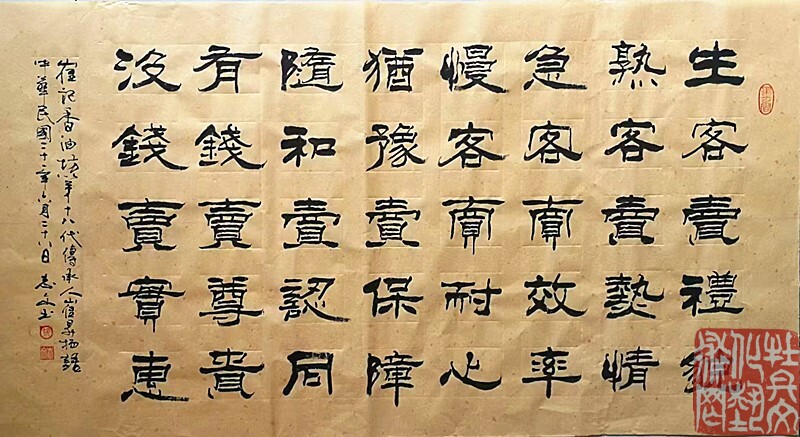 生客賣禮
熟客賣熱情
急客賣效率
慢客賣耐心
猶豫賣保障
隨和賣認同
有錢賣尊貴
沒錢賣實惠
崔記香油坊第十八代傳承人崔昇
中華民國三十二年六月二十八日